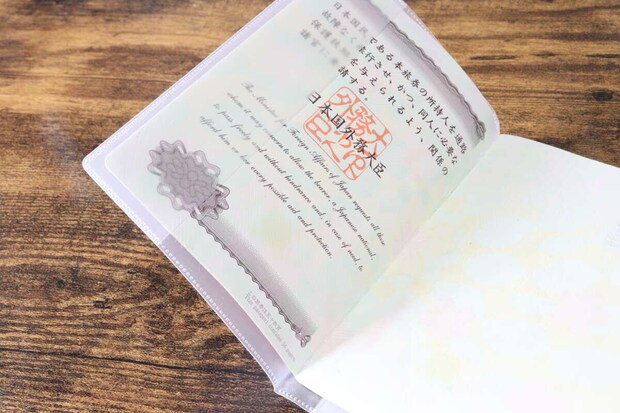 日本国民である本旅券の所持人を通路
故障な 行させ、かつ、同人に必要な
保護 を与えられるよう、関係の
請する。
日本国外務大臣
The Minister for Foreign Affairs of Japan requests all those
whom it may concern to allow the bearer, a Japanese national,
to pass freely and without hindrance and, in case of need, to
afford him or her every possible aid and protection.